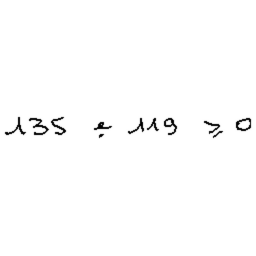 135 ÷ 119 ⩾ 0